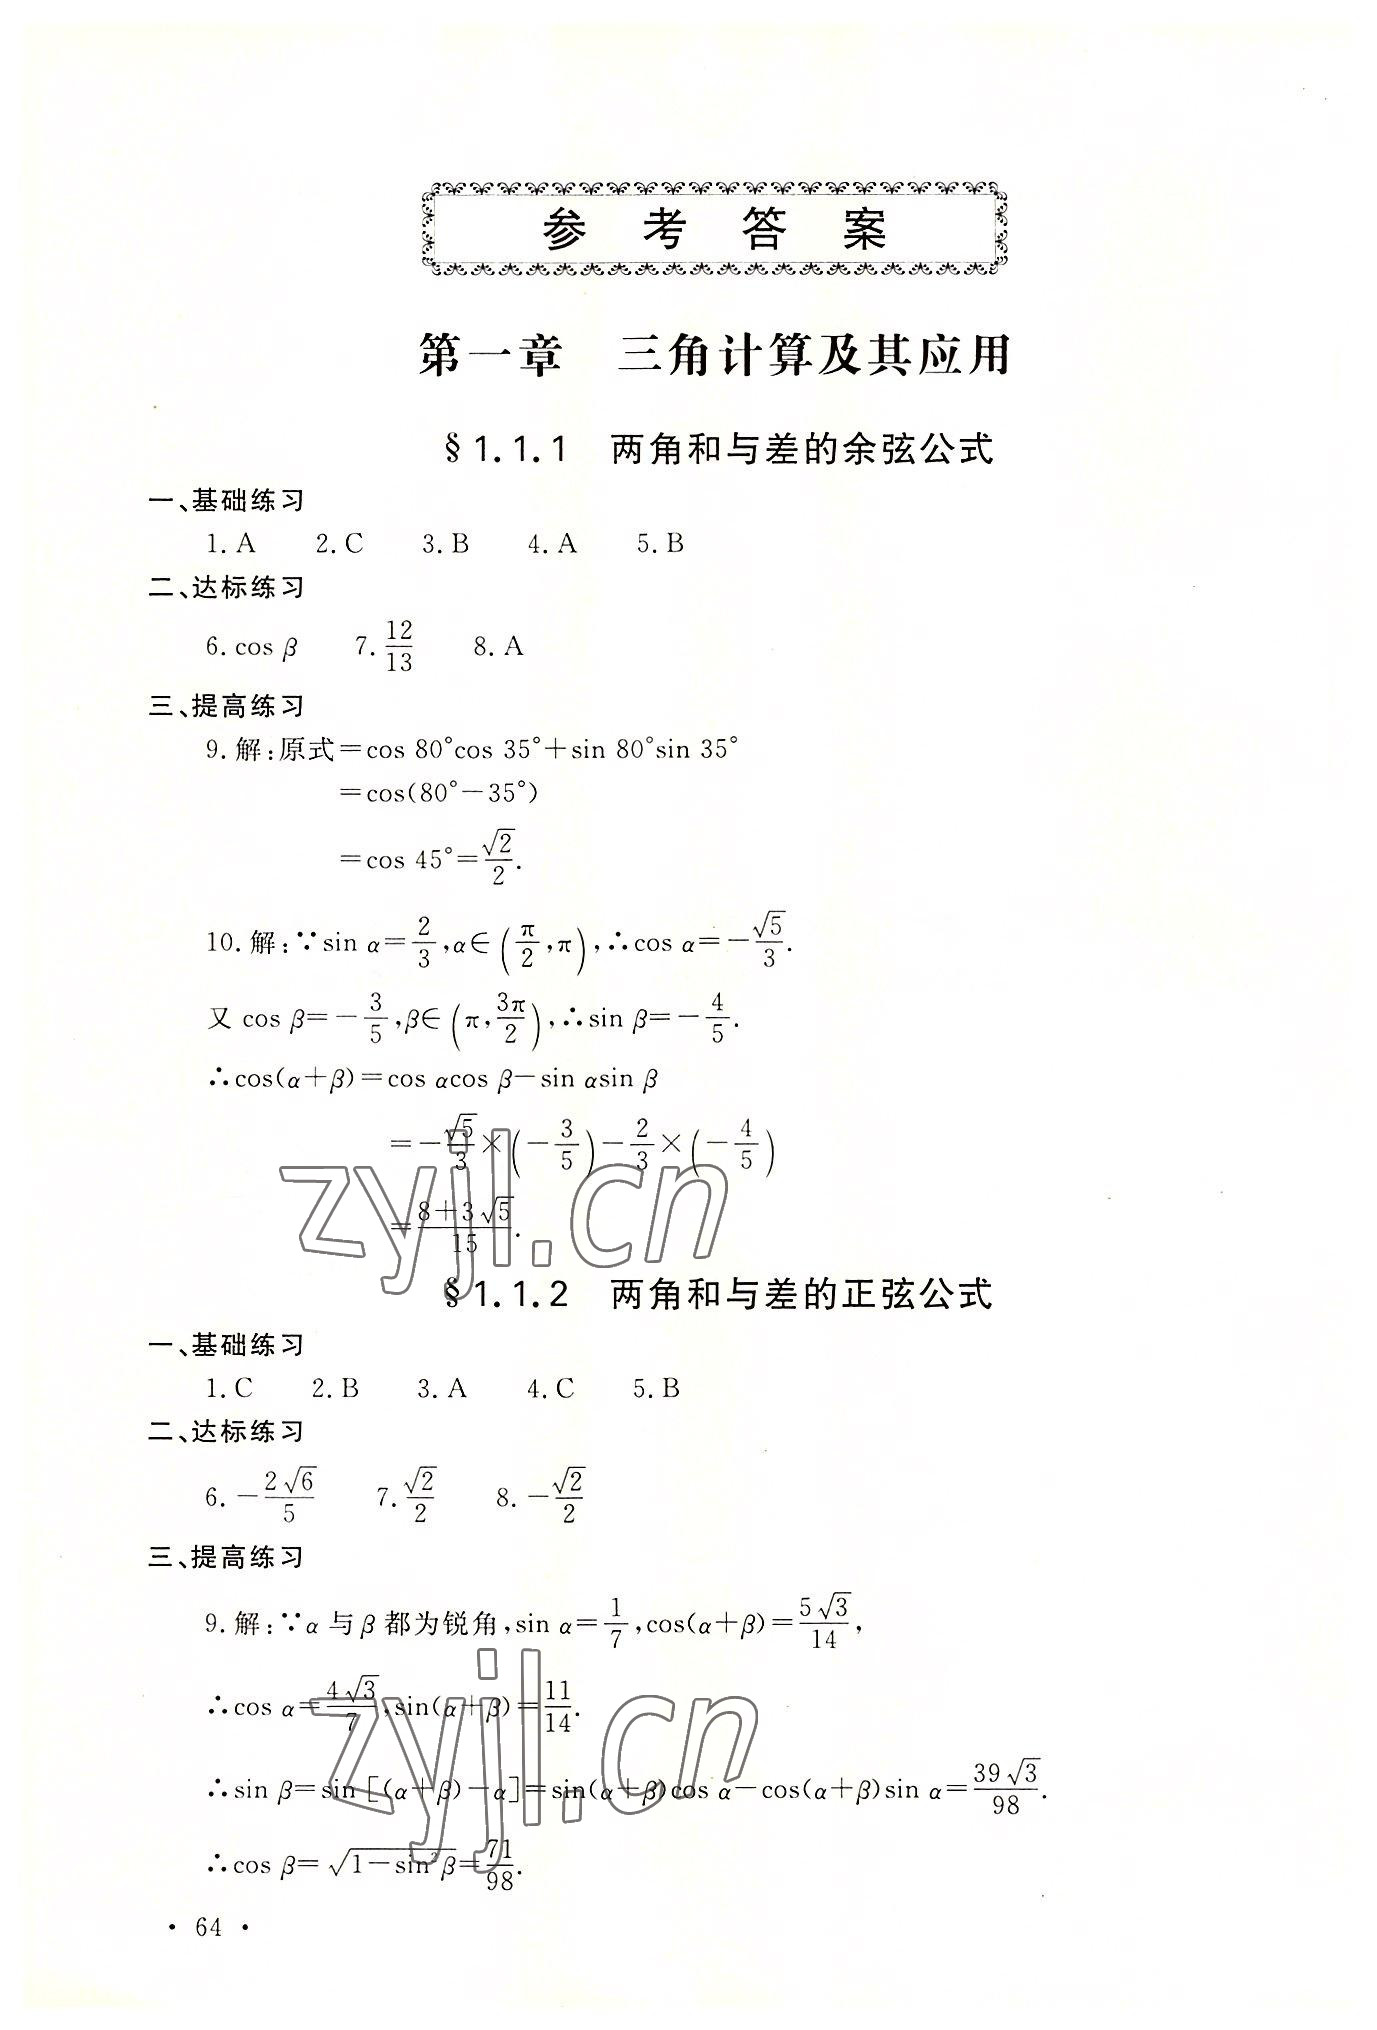 参考答案
第一章 三角计算及其应用
§1.1.1 两角和与差的余弦公式
一、基础练习
1. A 2. C 3. B 4. A 5. B
二、达标练习
6. cos β 7. 12/13 8. A
三、提高练习
9. 解:原式=cos 80°cos 35°+sin 80°sin 35°
=cos(80°-35°)
=cos 45°=√2/2.
10. 解:∵sin α=2/3,α∈(π/2,π),∴cos α=-√5/3.
又 cos β=-3/5,β∈(π,3π/2),∴sin β=-4/5.
∴cos(α+β)=cos αcos β-sin αsin β
=-√5/3×(-3/5)-2/3×(-4/5)
=(8+3√5)/15.
zyjl.cn
§1.1.2 两角和与差的正弦公式
一、基础练习
1. C 2. B 3. A 4. C 5. B
二、达标练习
6. -2√6/5 7. √2/2 8. -√2/2
三、提高练习
9. 解:∵α与β都为锐角,sin α=1/7,cos(α+β)=5√3/14,
∴cos α=4√3/7,sin(α+β)=11/14.
∴sin β=sin[(α+β)-α]=sin(α+β)cos α-cos(α+β)sin α=39√3/98.
∴cos β=√(1-sin²β)=71/98.
zyjl.cn
· 64 ·